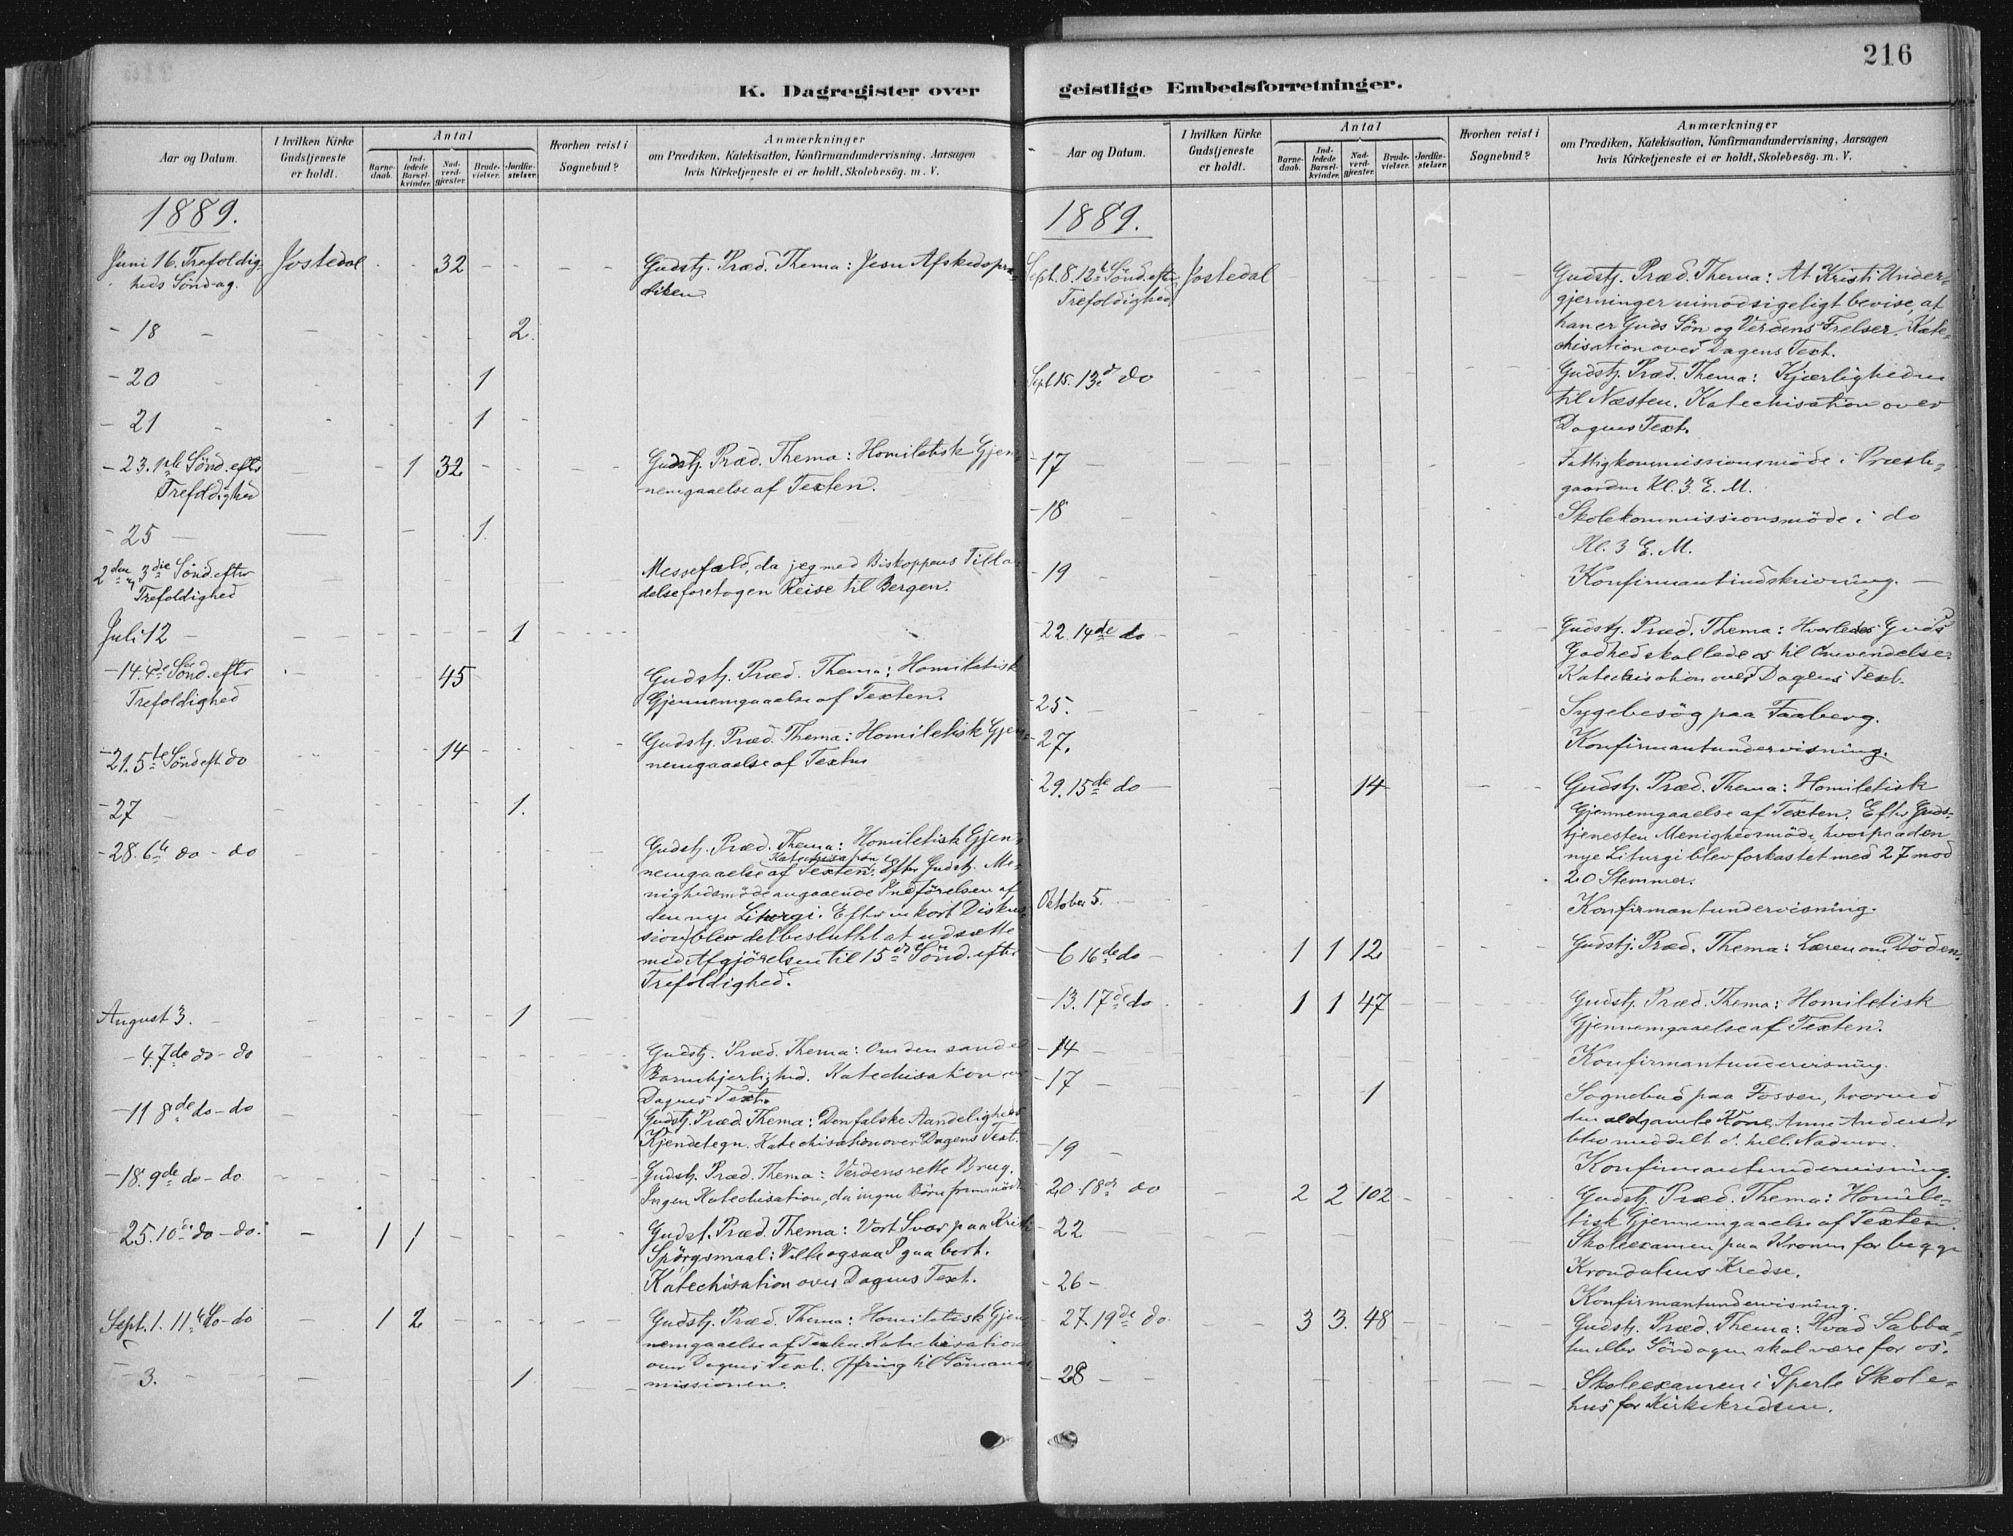 216
K. Dagregister over geistlige Embedsforretninger.
Aar og Datum.
I hvilken Kirke Gudstjeneste er holdt.
Antal
Barnedaab.
Indledede Barselkvinder.
Nadverdgjester.
Brudevielser.
Jordfæstelser.
Hvorhen reist i Sognebud?
Anmærkninger
om Prædiken, Katekisation, Konfirmandundervisning, Aarsagen
hvis Kirketjeneste ei er holdt, Skolebesög. m. V.
1889.
Juni 16. Trefoldig- Jostedal 32 Gudstj. Præd. Thema: Jesu Afskedspræ-
heds Söndag. diken.
- 18 2.
- 20 1
- 21 1
- 23. 1ste Sönd. efter 1 32 Gudstj. Præd. Thema: Homiletisk Gjen-
Trefoldighed nemgaaelse af Texten.
- 25 1.
2den og 3die Sönd. efter Messefald, da jeg med Biskoppens Tilla-
Trefoldighed delse foretog en Reise til Bergen.
Juli 12 1
- 14. 4de Sönd. efter 45 Gudstj. Præd. Thema: Homiletisk
Trefoldighed Gjennemgaaelse af Texten.
- 21. 5te Sönd eft do 14 Gudstj. Præd. Thema: Homiletisk Gjen-
nemgaaelse af Texten
- 27 1.
- 28. 6te do - do Gudstj. Præd. Thema: Homiletisk Gjen-
nemgaaelse af Texten. Katechisation. Efter Gudstj. Me-
nighedsmöde angaaende Indförelsen af
den nye Liturgi. Efter en kort Diskus-
sion blev det besluttet at udsætte
med Afgjörelsen til 15de Sönd. efter
Trefoldighed.
August 3. 1
- 4. 7de do - do Gudstj. Præd. Thema: Om den sande
Barmhjertighed. Katechisation over
Dagens Text.
- 11 8de do - do Gudstj. Præd. Thema: Den falske Aandeligheds
Kjendetegn. Katechisation over Dagens Text.
- 18. 9de do - do Gudstj. Præd. Thema: Verdens rette Brug.
Ingen Katechisation, da ingen Börn fremmödte
25. 10de do - do. 1 1 Gudst. Præd. Thema: Vort Svar paa Kristi
Spörgsmaal: Ville ogsaa I gaa bort.
Katechisation over Dagens Text.
Sept. 1. 11te do - do 1 2 Gudstj. Præd. Thema: Homiletisk Gjen-
nemgaaelse af Texten. Katechisation
over Dagens Text. Ofring til Sömands-
- 3. 1 missionen.
Aar og Datum.
I hvilken Kirke Gudstjeneste er holdt.
Antal
Barnedaab.
Indledede Barselkvinder.
Nadverdgjester.
Brudevielser.
Jordfæstelser.
Hvorhen reist i Sognebud?
Anmærkninger
om Prædiken, Katekisation, Konfirmandundervisning, Aarsagen
hvis Kirketjeneste ei er holdt, Skolebesög. m. V.
1889.
Sept. 8. 12te Sönd. efter Jostedal Gudstj. Præd. Thema: At Kristi Under-
Trefoldighed gjerninger uimodsigeligt bevise, at
han er Guds Sön og Verdens Frelser. Kate-
chisation over Dagens Text.
Sept 15. 13de do Gudstj. Præd. Thema: Kjærligheden
til Næsten. Katechisation over
Dagens Text.
- 17 Fattigkommissionsmöde i Præste-
gaarden Kl. 3 E. M.
- 18 Skolekommissionsmöde i do
Kl. 3 E. M.
- 19 Konfirmantindskrivning.
- 22. 14de do Gudstj. Præd. Thema: Hvorledes Guds
Godhed skal lede os til Omvendelse.
Katechisation over Dagens Text.
- 25. Sygebesög paa Faaberg.
- 27. Konfirmantundervisning.
- 29. 15de do 14 Gudstj. Præd. Thema: Homiletisk
Gjennemgaaelse af Texten. Efter Guds-
tjenesten Menighedsmöde, hvorpaa den
nye Liturgi blev forkastet med 27 mod
20 Stemmer.
Oktober 5. Konfirmantundervisning.
- 6 16de do 1 1 12 Gudstj. Præd. Thema: Læren om Döden.
- 13. 17de do 1 1 47 Gudstj. Præd. Thema: Homiletisk
Gjennemgaaelse af Texten.
- 14 Konfirmantundervisning.
- 17 1 Sognebud paa Fossen, hvorved
den aldgamle Kone Anne Andersdr
blev meddelt d. hell. Nadvere.
- 19 Konfirmantundervisning.
20 18de do 2 2 102 Gudstj. Præd. Thema: Homile-
tisk Gjennemgaaelse af Texten.
- 22 Skoleexamen paa Kronen for begge
Krondalens Kredse.
- 26 - Konfirmantundervisning.
27. 19de do 3 3. 48 Gudstj. Præd. Thema: Hvad Sabba-
ten eller Söndagen skal være for os.
- 28 Skoleexamen i Sperle Skole-
hus for Kirkekredsen.